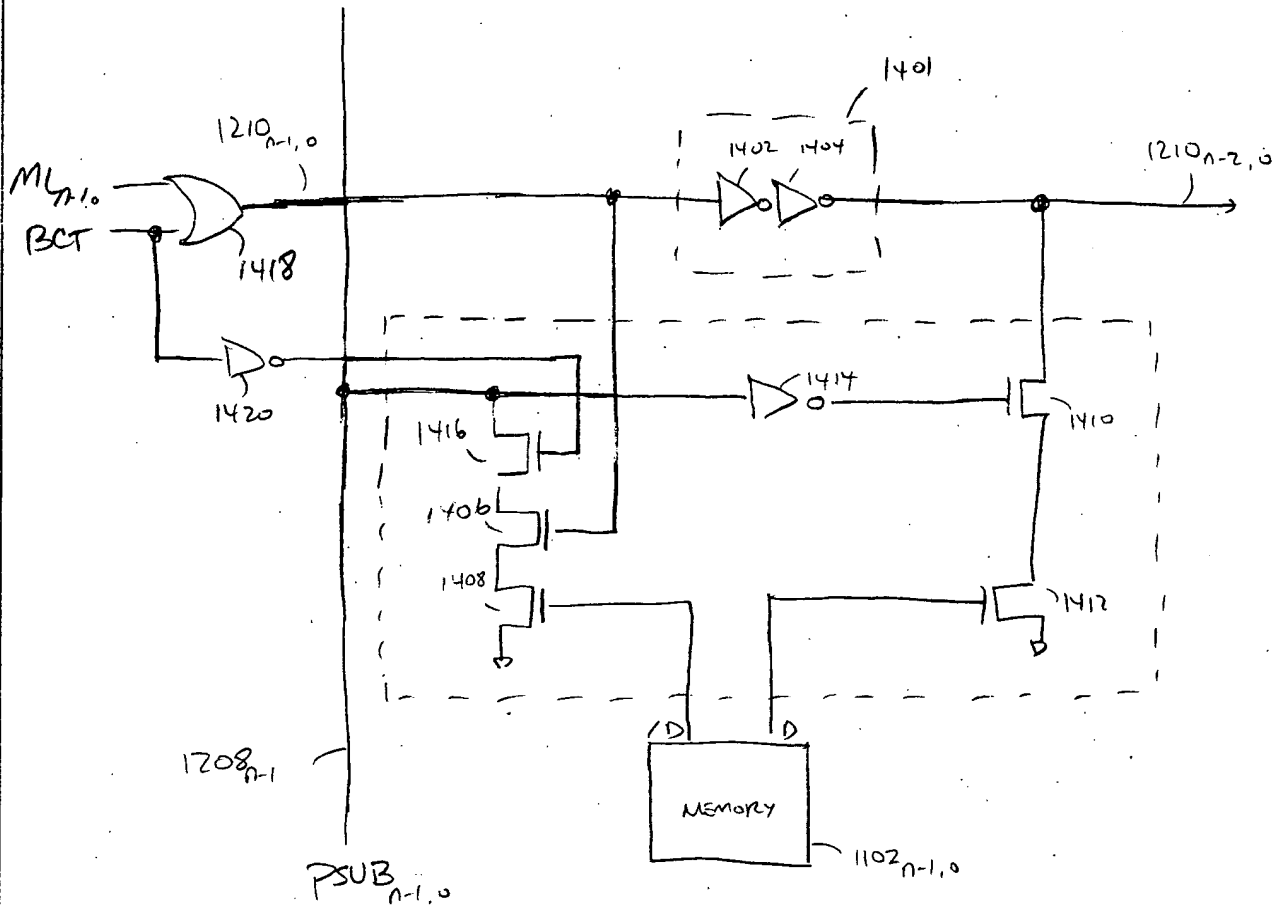 1401
1210n-1,0
1402
1404
1210n-2,0
MLn-1,0
BCT
1418
1420
1414
1410
1416
1406
1408
1412
/D
D
1208n-1
MEMORY
1102n-1,0
PSUBn-1,0